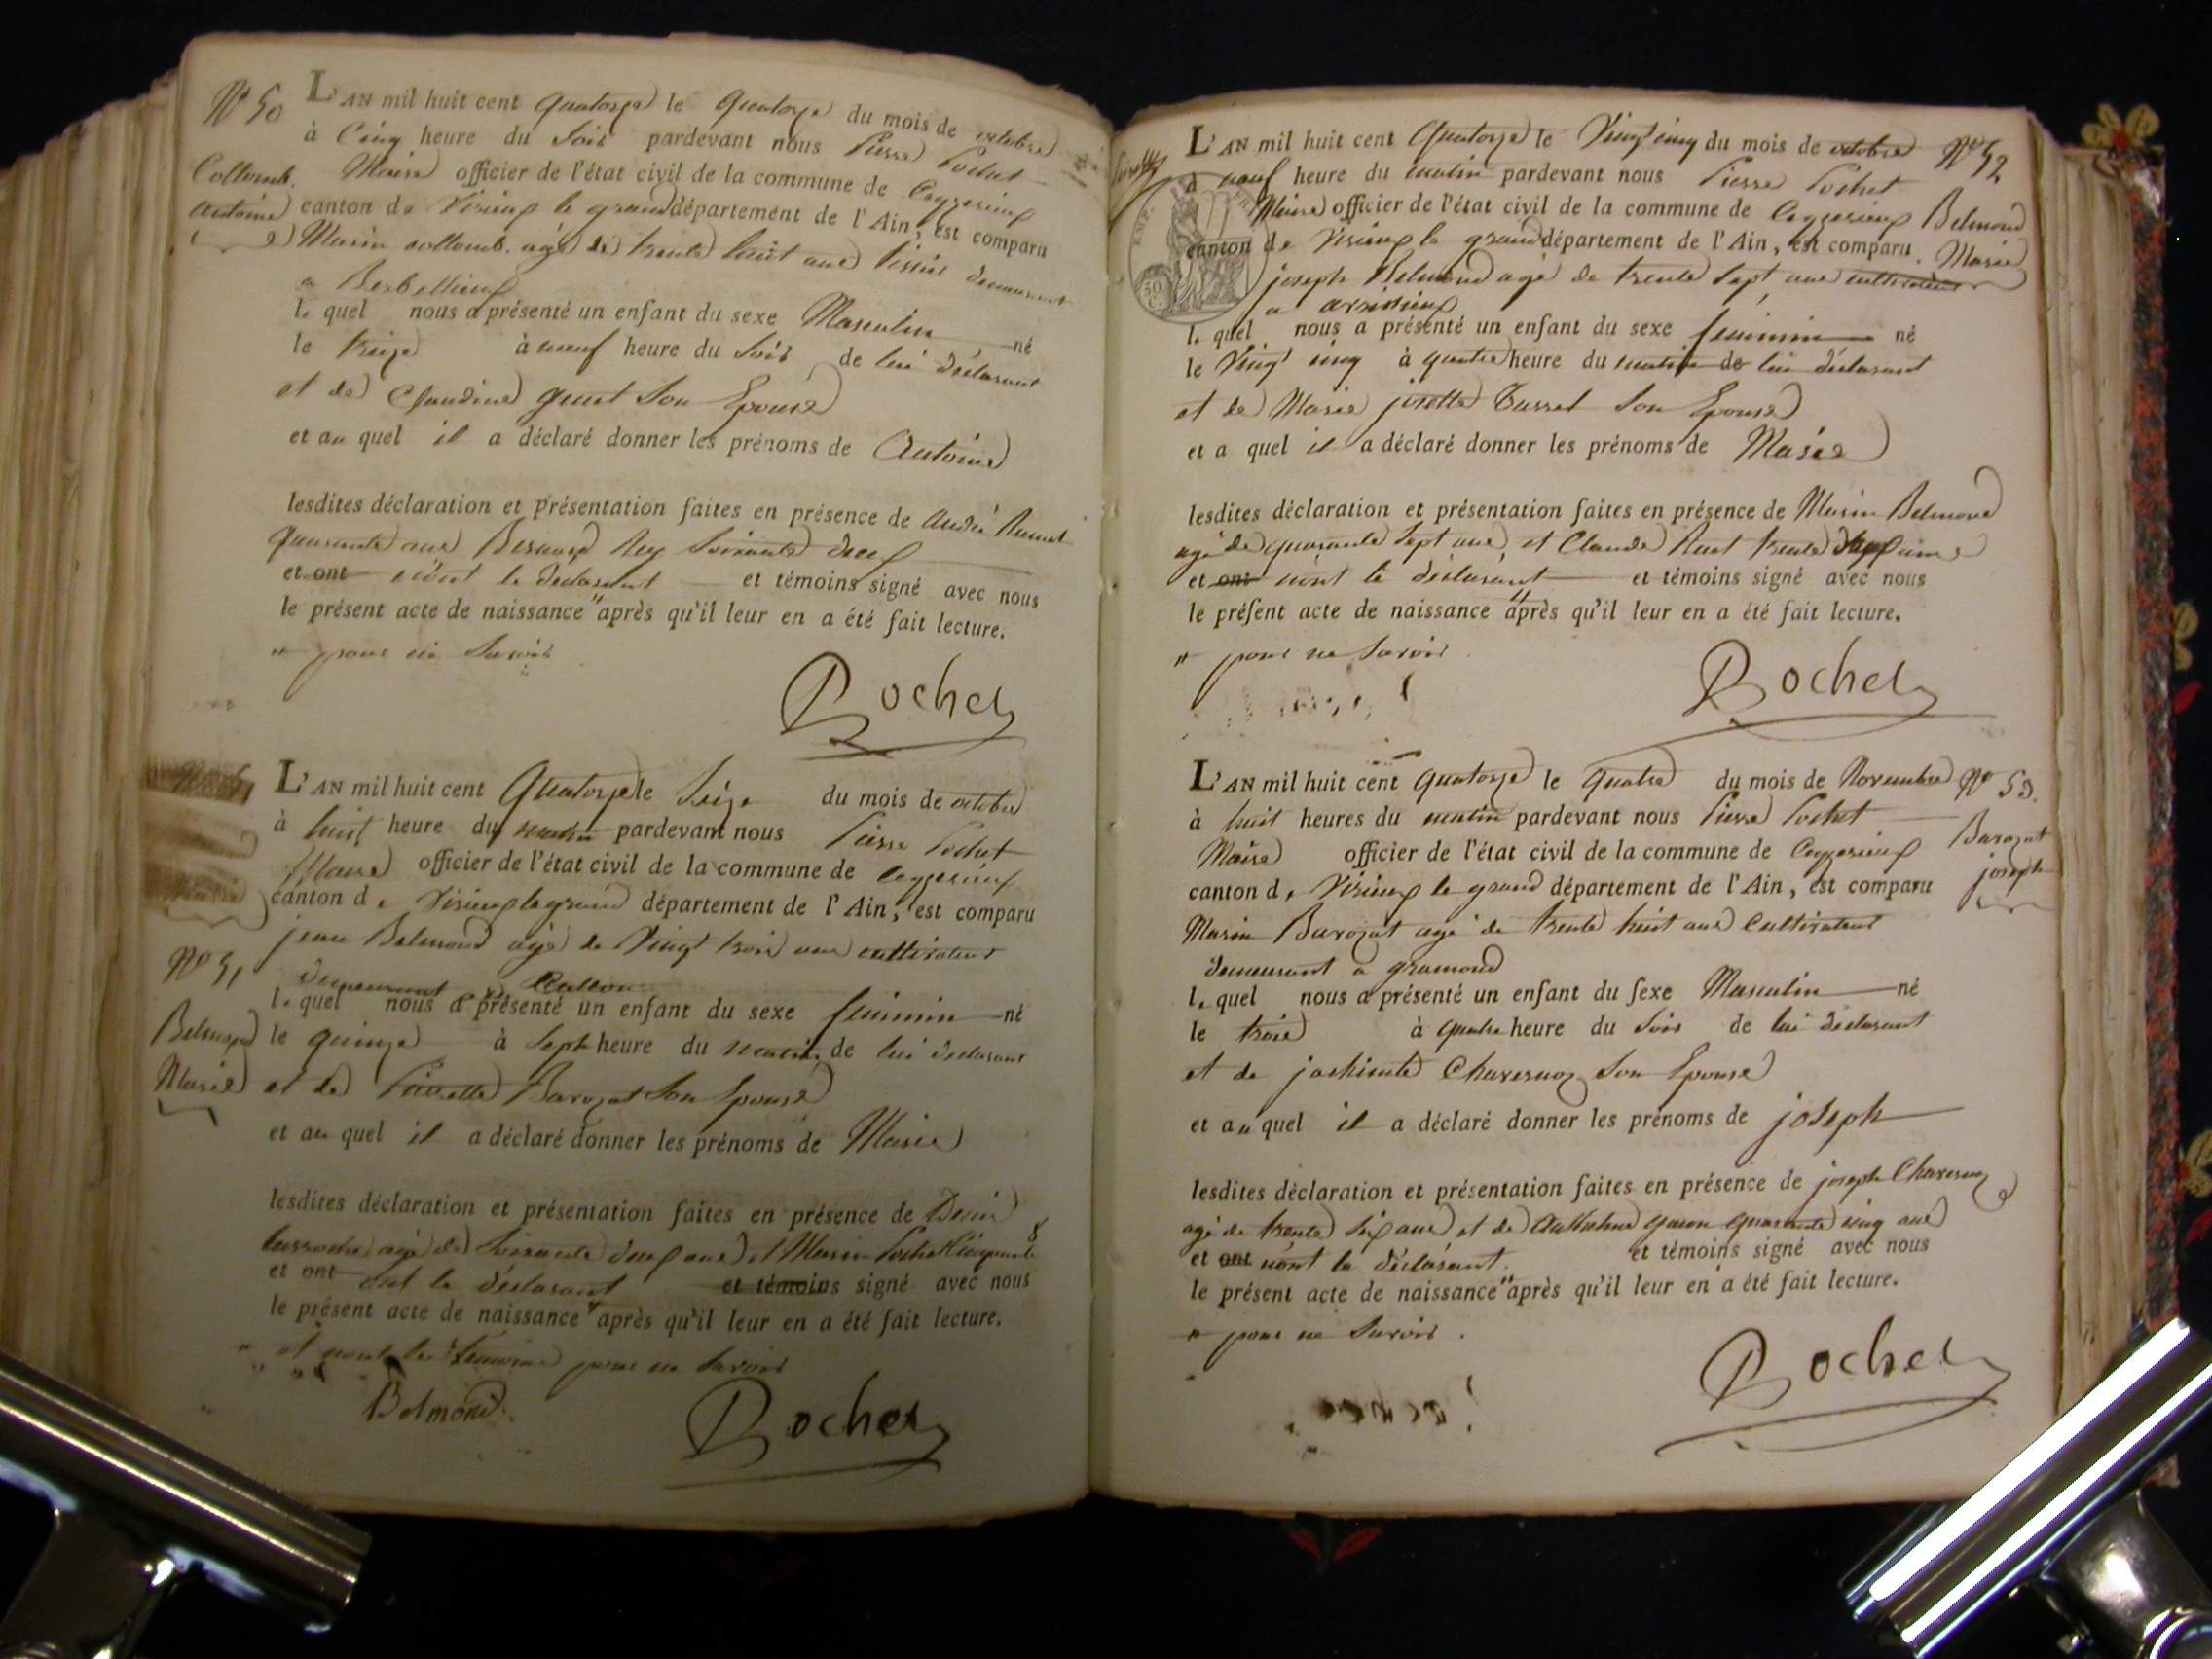 Nº 50
L'AN mil huit cent quatorze le quatorze du mois de octobre
à Cinq heure du Soir pardevant nous Pierre Pochet
Collomb. Maire officier de l'état civil de la commune de Ceyzerieux
antoine canton de Virieux le grand département de l'Ain, est comparu
Marin collomb. agé de trente huit ans tissier demeurant
a
le quel nous a présenté un enfant du sexe Masculin né
le treize à neuf heure du Soir de lui déclarant
et de Claudine Son Epouse
et au quel il a déclaré donner les prénoms de Antoine
lesdites déclaration et présentation faites en présence de andré
quarante ans Bernard Rey Soixante
et ont n'ont le déclarant et témoins signé avec nous
le présent acte de naissance " après qu'il leur en a été fait lecture.
" pour ne Savoir
Pochet
L'AN mil huit cent Quatorze le Seize du mois de octobre
à huit heure du matin pardevant nous Pierre Pochet
Maire officier de l'état civil de la commune de Ceyzerieux
canton de Virieux le grand département de l'Ain, est comparu
jean Belmond agé de Vingt trois ans cultivateur
Nº 51 demeurant
le quel nous a présenté un enfant du sexe feminin né
Belmond le quinze à Sept heure du matin de lui déclarant
Marie et de Pierrette Barozat Son Epouse
et au quel il a déclaré donner les prénoms de Marie
lesdites déclaration et présentation faites en présence de Denis
agé de Soixante ans et Marin Pochet Cinquante
et ont ont le déclarant et témoins signé avec nous
le présent acte de naissance " après qu'il leur en a été fait lecture.
" et non les témoins pour ne Savoir
Belmond
Pochet
L'AN mil huit cent Quatorze le Vingt cinq du mois de octobre Nº 52
à neuf heure du matin pardevant nous Pierre Pochet
Maire officier de l'état civil de la commune de Ceyzerieux Belmond
canton de Virieux le grand département de l'Ain, est comparu Marie
joseph Belmond agé de trente Sept ans cultivateur
a
le quel nous a présenté un enfant du sexe feminin né
le Vingt cinq à quatre heure du matin de lui déclarant
et de Marie josette Son Epouse
et a quel il a déclaré donner les prénoms de Marie
lesdites déclaration et présentation faites en présence de Marin Belmond
agé de quarante Sept ans et Claude trente
et ont n'ont le déclarant et témoins signé avec nous
le présent acte de naissance " après qu'il leur en a été fait lecture.
" pour ne Savoir
Pochet
L'AN mil huit cent quatorze le quatre du mois de Novembre Nº 53.
à huit heures du matin pardevant nous Pierre Pochet
Maire officier de l'état civil de la commune de Ceyzerieux Barozat
canton de Virieux le grand département de l'Ain, est comparu joseph
Marin Barozat agé de trente huit ans Cultivateur
demeurant a gramond
le quel nous a présenté un enfant du sexe Masculin né
le trois à quatre heure du Soir de lui déclarant
et de Son Epouse
et au quel il a déclaré donner les prénoms de joseph
lesdites déclaration et présentation faites en présence de joseph
agé de trente Six ans et de quarante cinq ans
et ont n'ont le déclarant. et témoins signé avec nous
le présent acte de naissance " après qu'il leur en a été fait lecture.
" pour ne Savoir.
Pochet